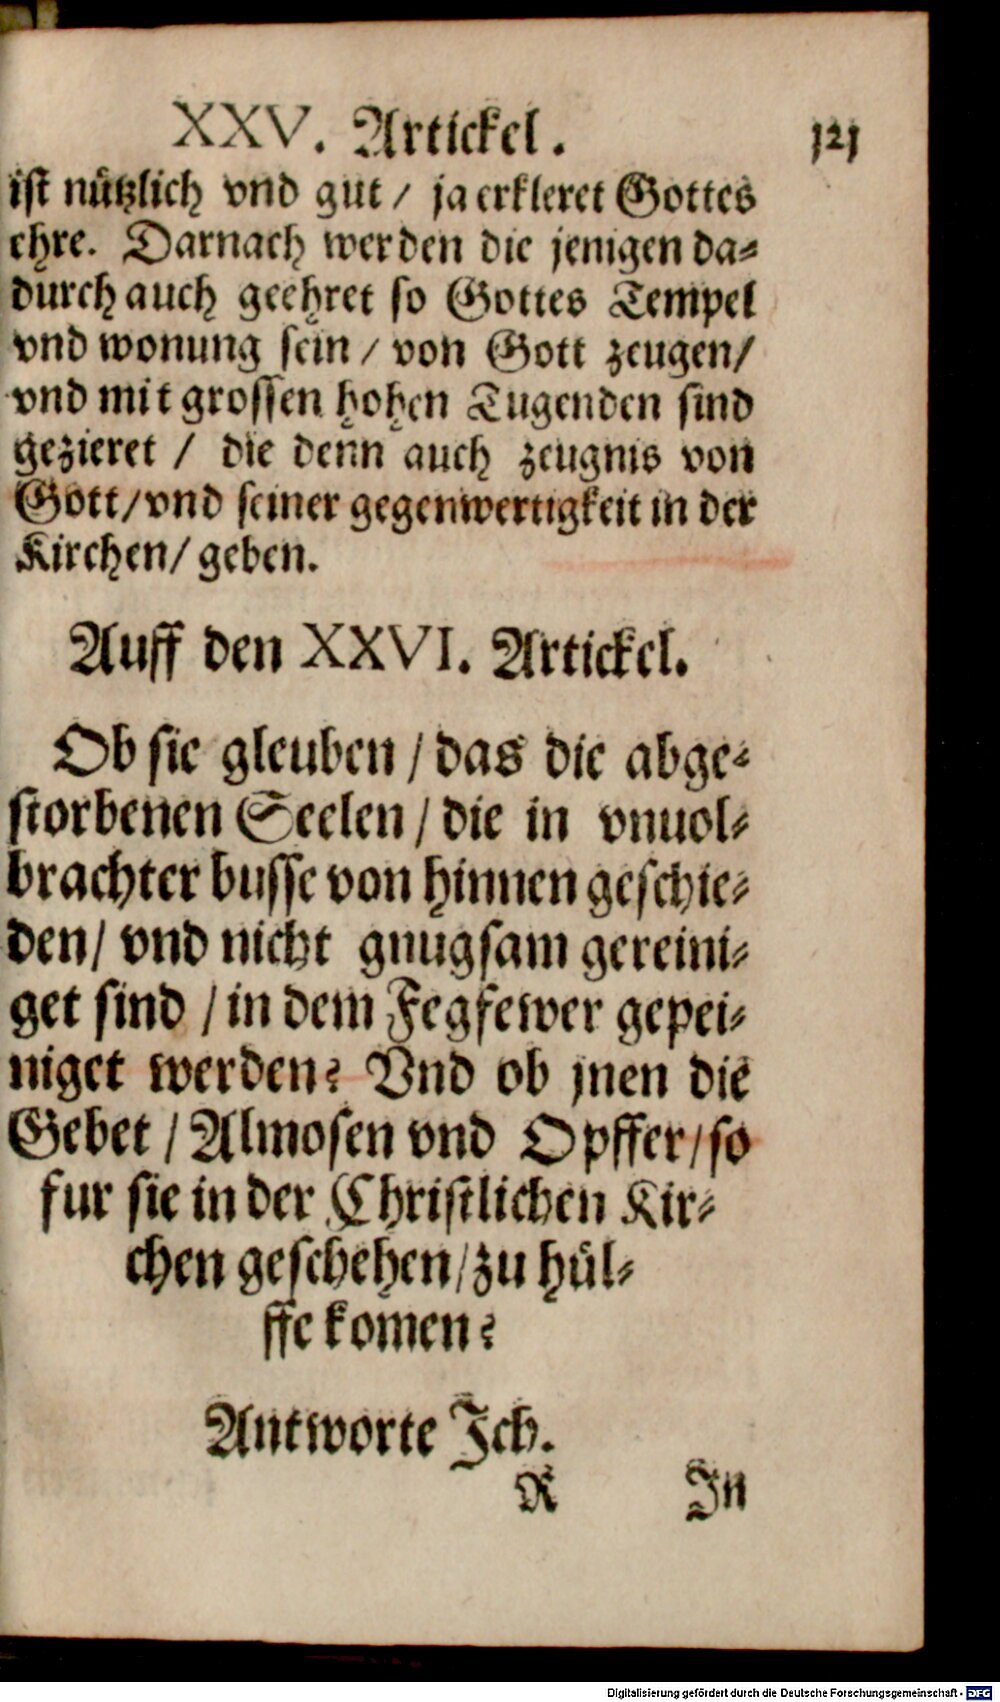 XXV. Artickel. 121
ist nützlich vnd gut / ja erkleret Gottes
ehre. Darnach werden die jenigen da⸗
durch auch geehret so Gottes Tempel
vnd wonung sein / von Gott zeugen/
vnd mit grossen hohen Tugenden sind
gezieret / die denn auch zeugnis von
Gott/vnd seiner gegenwertigkeit in der
Kirchen/ geben.
Auff den XXVI. Artickel.
Ob sie gleuben / das die abge⸗
storbenen Seelen / die in vnuol⸗
brachter busse von hinnen geschie⸗
den/ vnd nicht gnugsam gereini⸗
get sind / in dem Fegfewer gepei⸗
niget werden? Vnd ob jnen die
Gebet / Almosen vnd Opffer/so
fur sie in der Christlichen Kir⸗
chen geschehen/zu hül⸗
ffe komen?
Antworte Ich.
R In
Digitalisierung gefördert durch die Deutsche Forschungsgemeinschaft - DFG